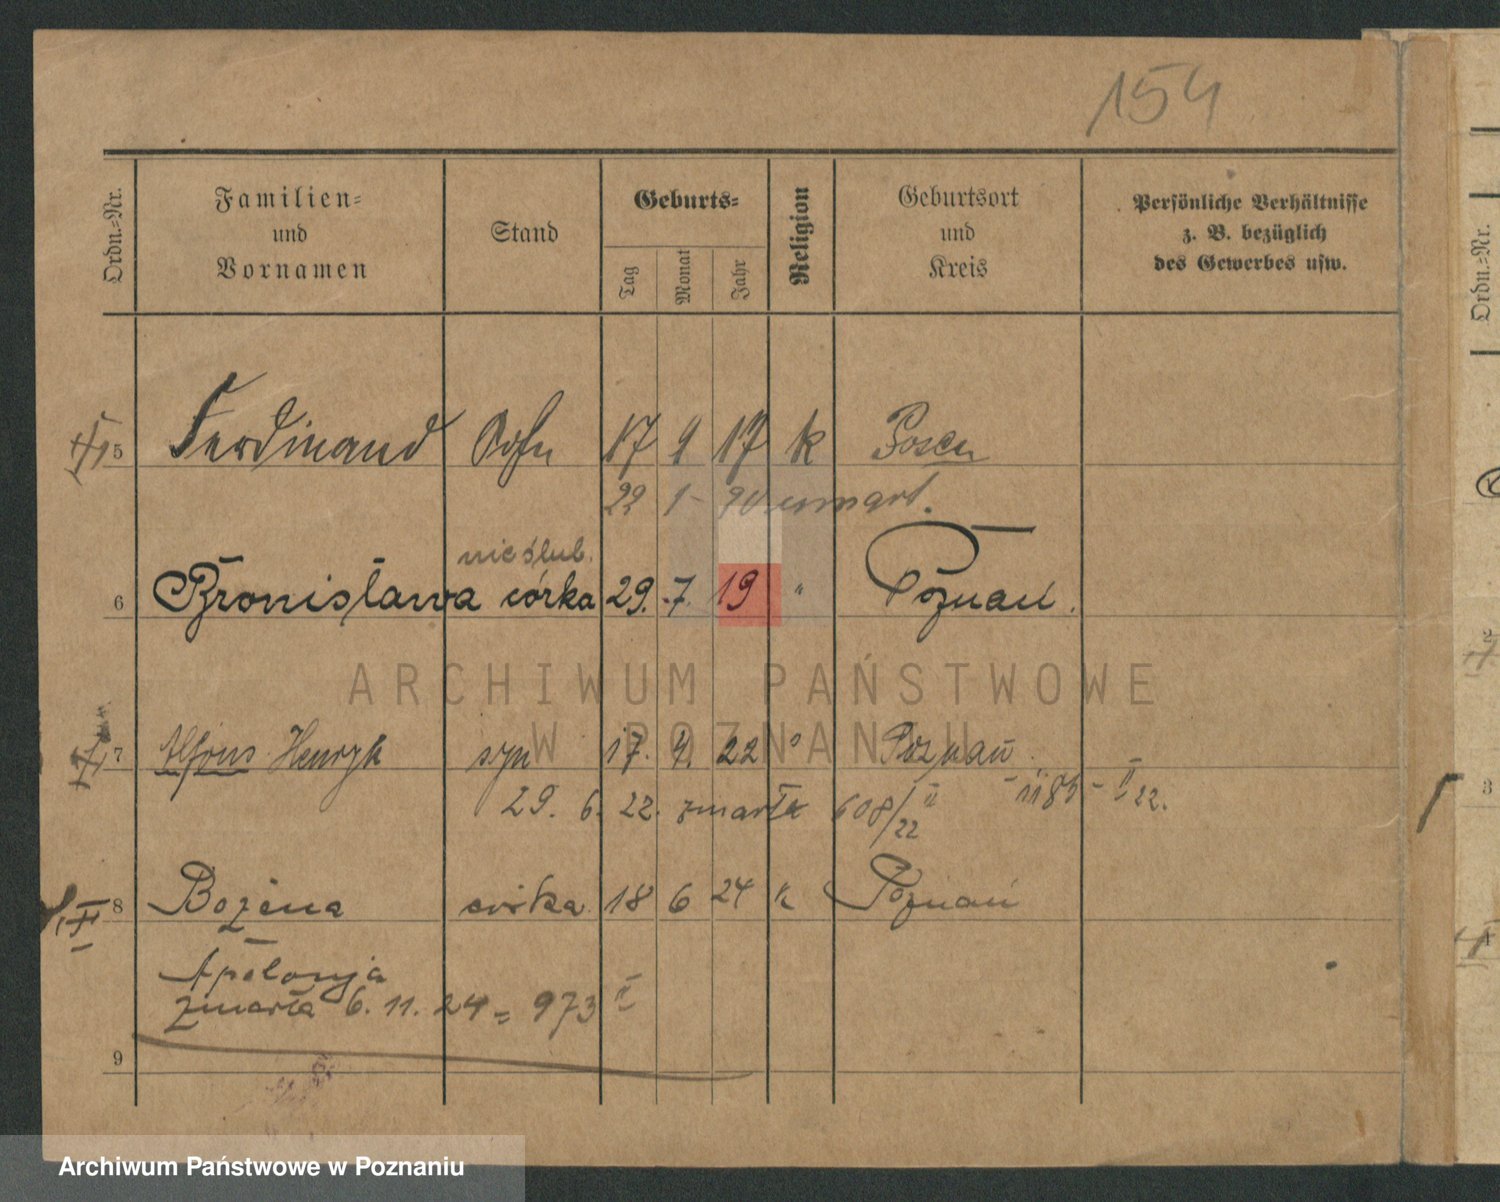 154
Ordn.-Nr.
Familien-
und
Vornamen
Stand
Geburts-
Tag
Monat
Jahr
Religion
Geburtsort
und
Kreis
Persönliche Verhältnisse
z. B. bezüglich
des Gewerbes usw.
Ordn.-Nr.
5 Ferdinand Sohn 17 9 17 k Posen
22 1 - 20 zmarł.
nieślub.
6 Bronisława córka 29. 7. 19 " Poznań.
ARCHIWUM PAŃSTWOWE
W POZNANIU
7 Alfons Henryk syn 17. 4. 22 " Poznań
29. 6. 22. zmarł 608/22 II
8 Bożena córka 18 6 24 k Poznań
Apolonja
zmarła 6. 11. 24 = 973 II
9
3
Archiwum Państwowe w Poznaniu